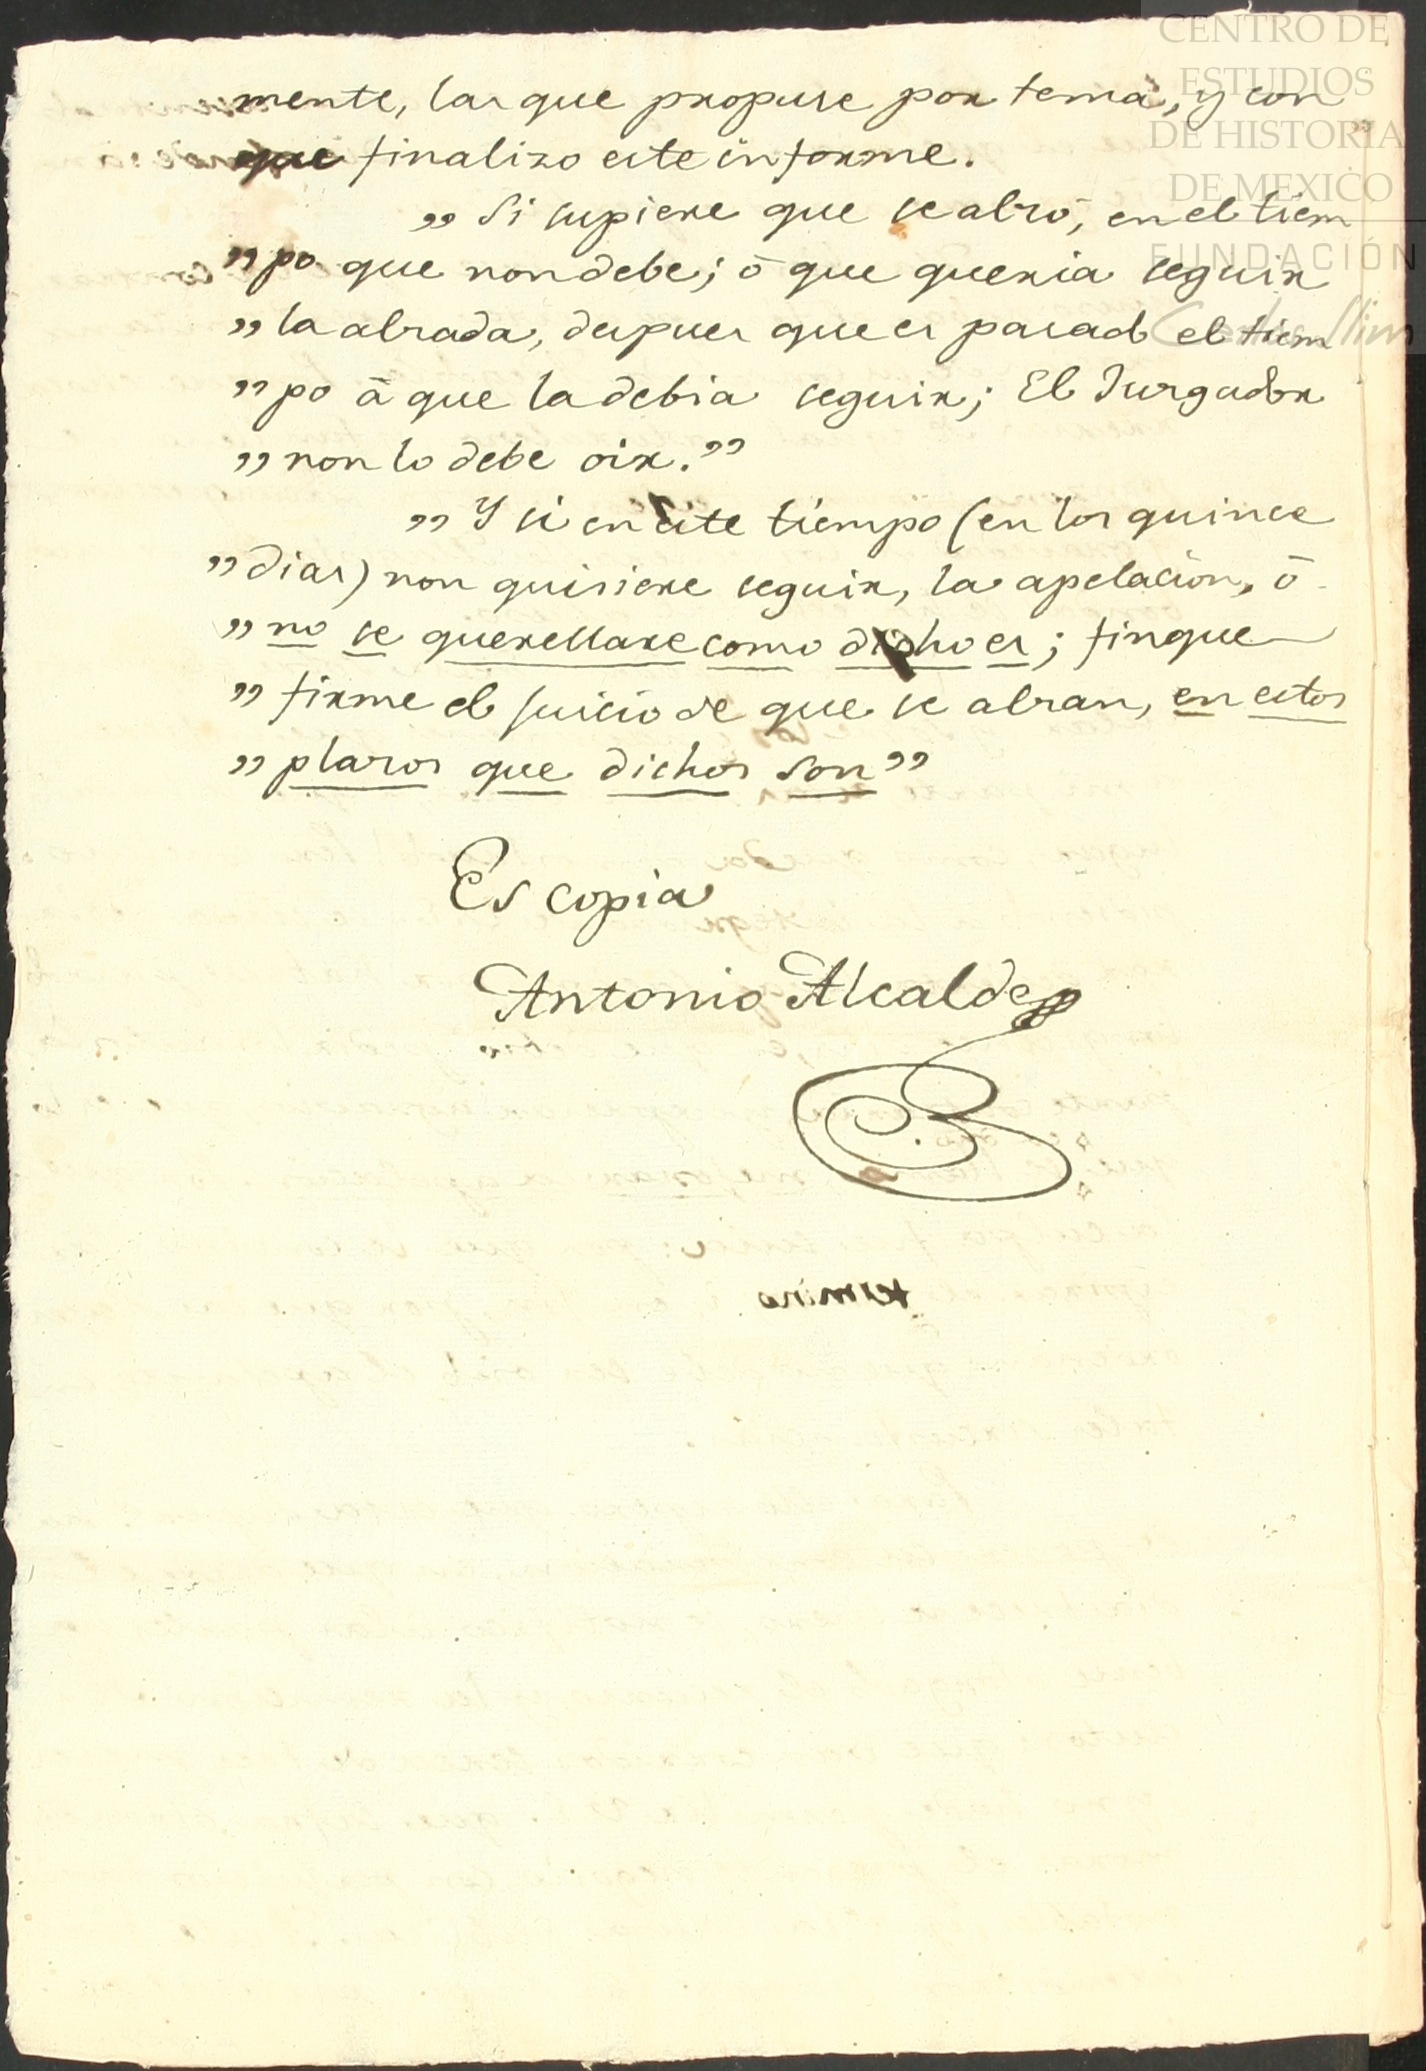 mente, las que propuse por tema, y con
que finalizo este informe.
„ Si supiere que se alzó, en el tiem
„ po que non debe; ó que queria seguir
„ la alzada, despues que es pasado el tiem
„ po á que la debia seguir; El Juzgador
„ non lo debe oir.”
„ Y si en este tiempo (en los quince
„ dias) non quisiere seguir, la apelacion, ó
„ no se querellare como dicho es; finque
„ firme el juicio de que se alzan, en estos
„ plazos que dichos son”
Es copia
Antonio Alcalde
termino
CENTRO DE
ESTUDIOS
DE HISTORIA
DE MEXICO
FUNDACIÓN
Carlos Slim